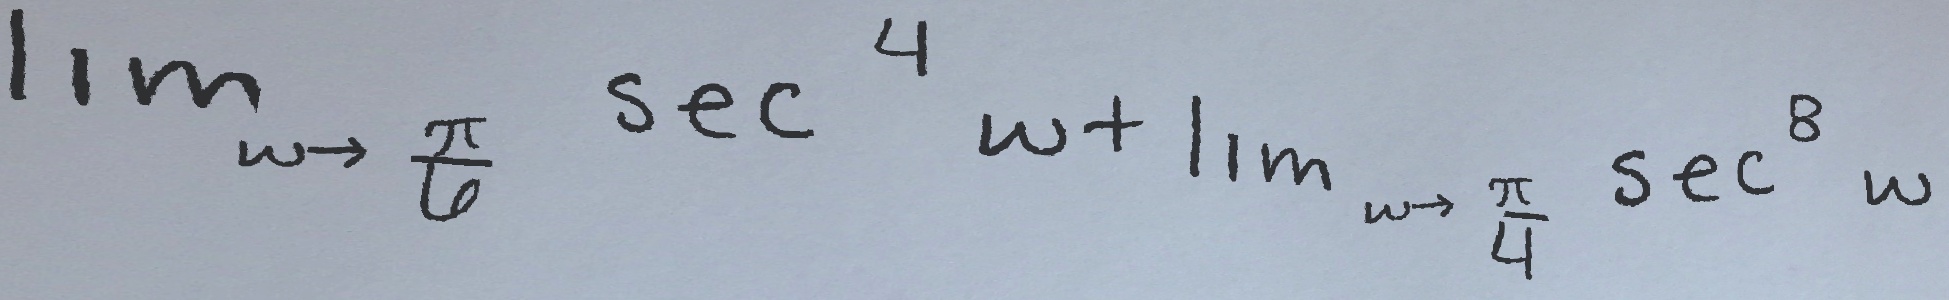 lim_{w→\frac{π}{6}} sec^4 w + lim_{w→\frac{π}{4}} sec^8 w